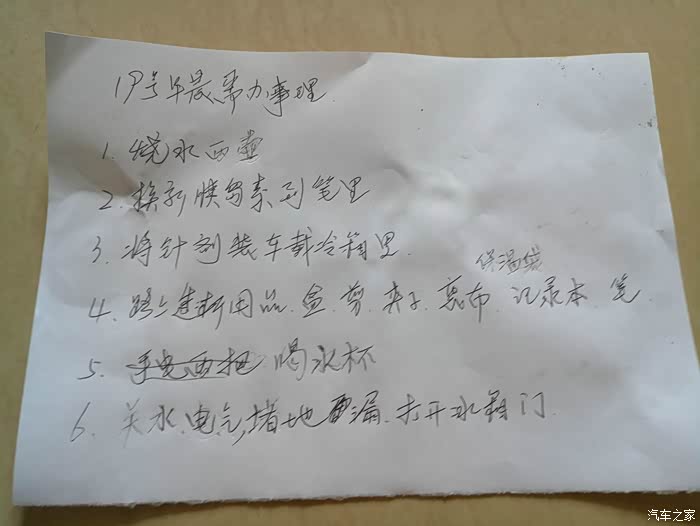 19号早晨需办事理
1. 烧水两壶
2. 换新胰岛素到笔里
3. 将针剂装车载冷箱里.
保温袋
4. 路上进新用品.盒.剪.夹子.抹布.记录本.笔.
5. 手电两把 喝水杯
6. 关水.电气,堵地漏.打开冰箱门.
汽车之家